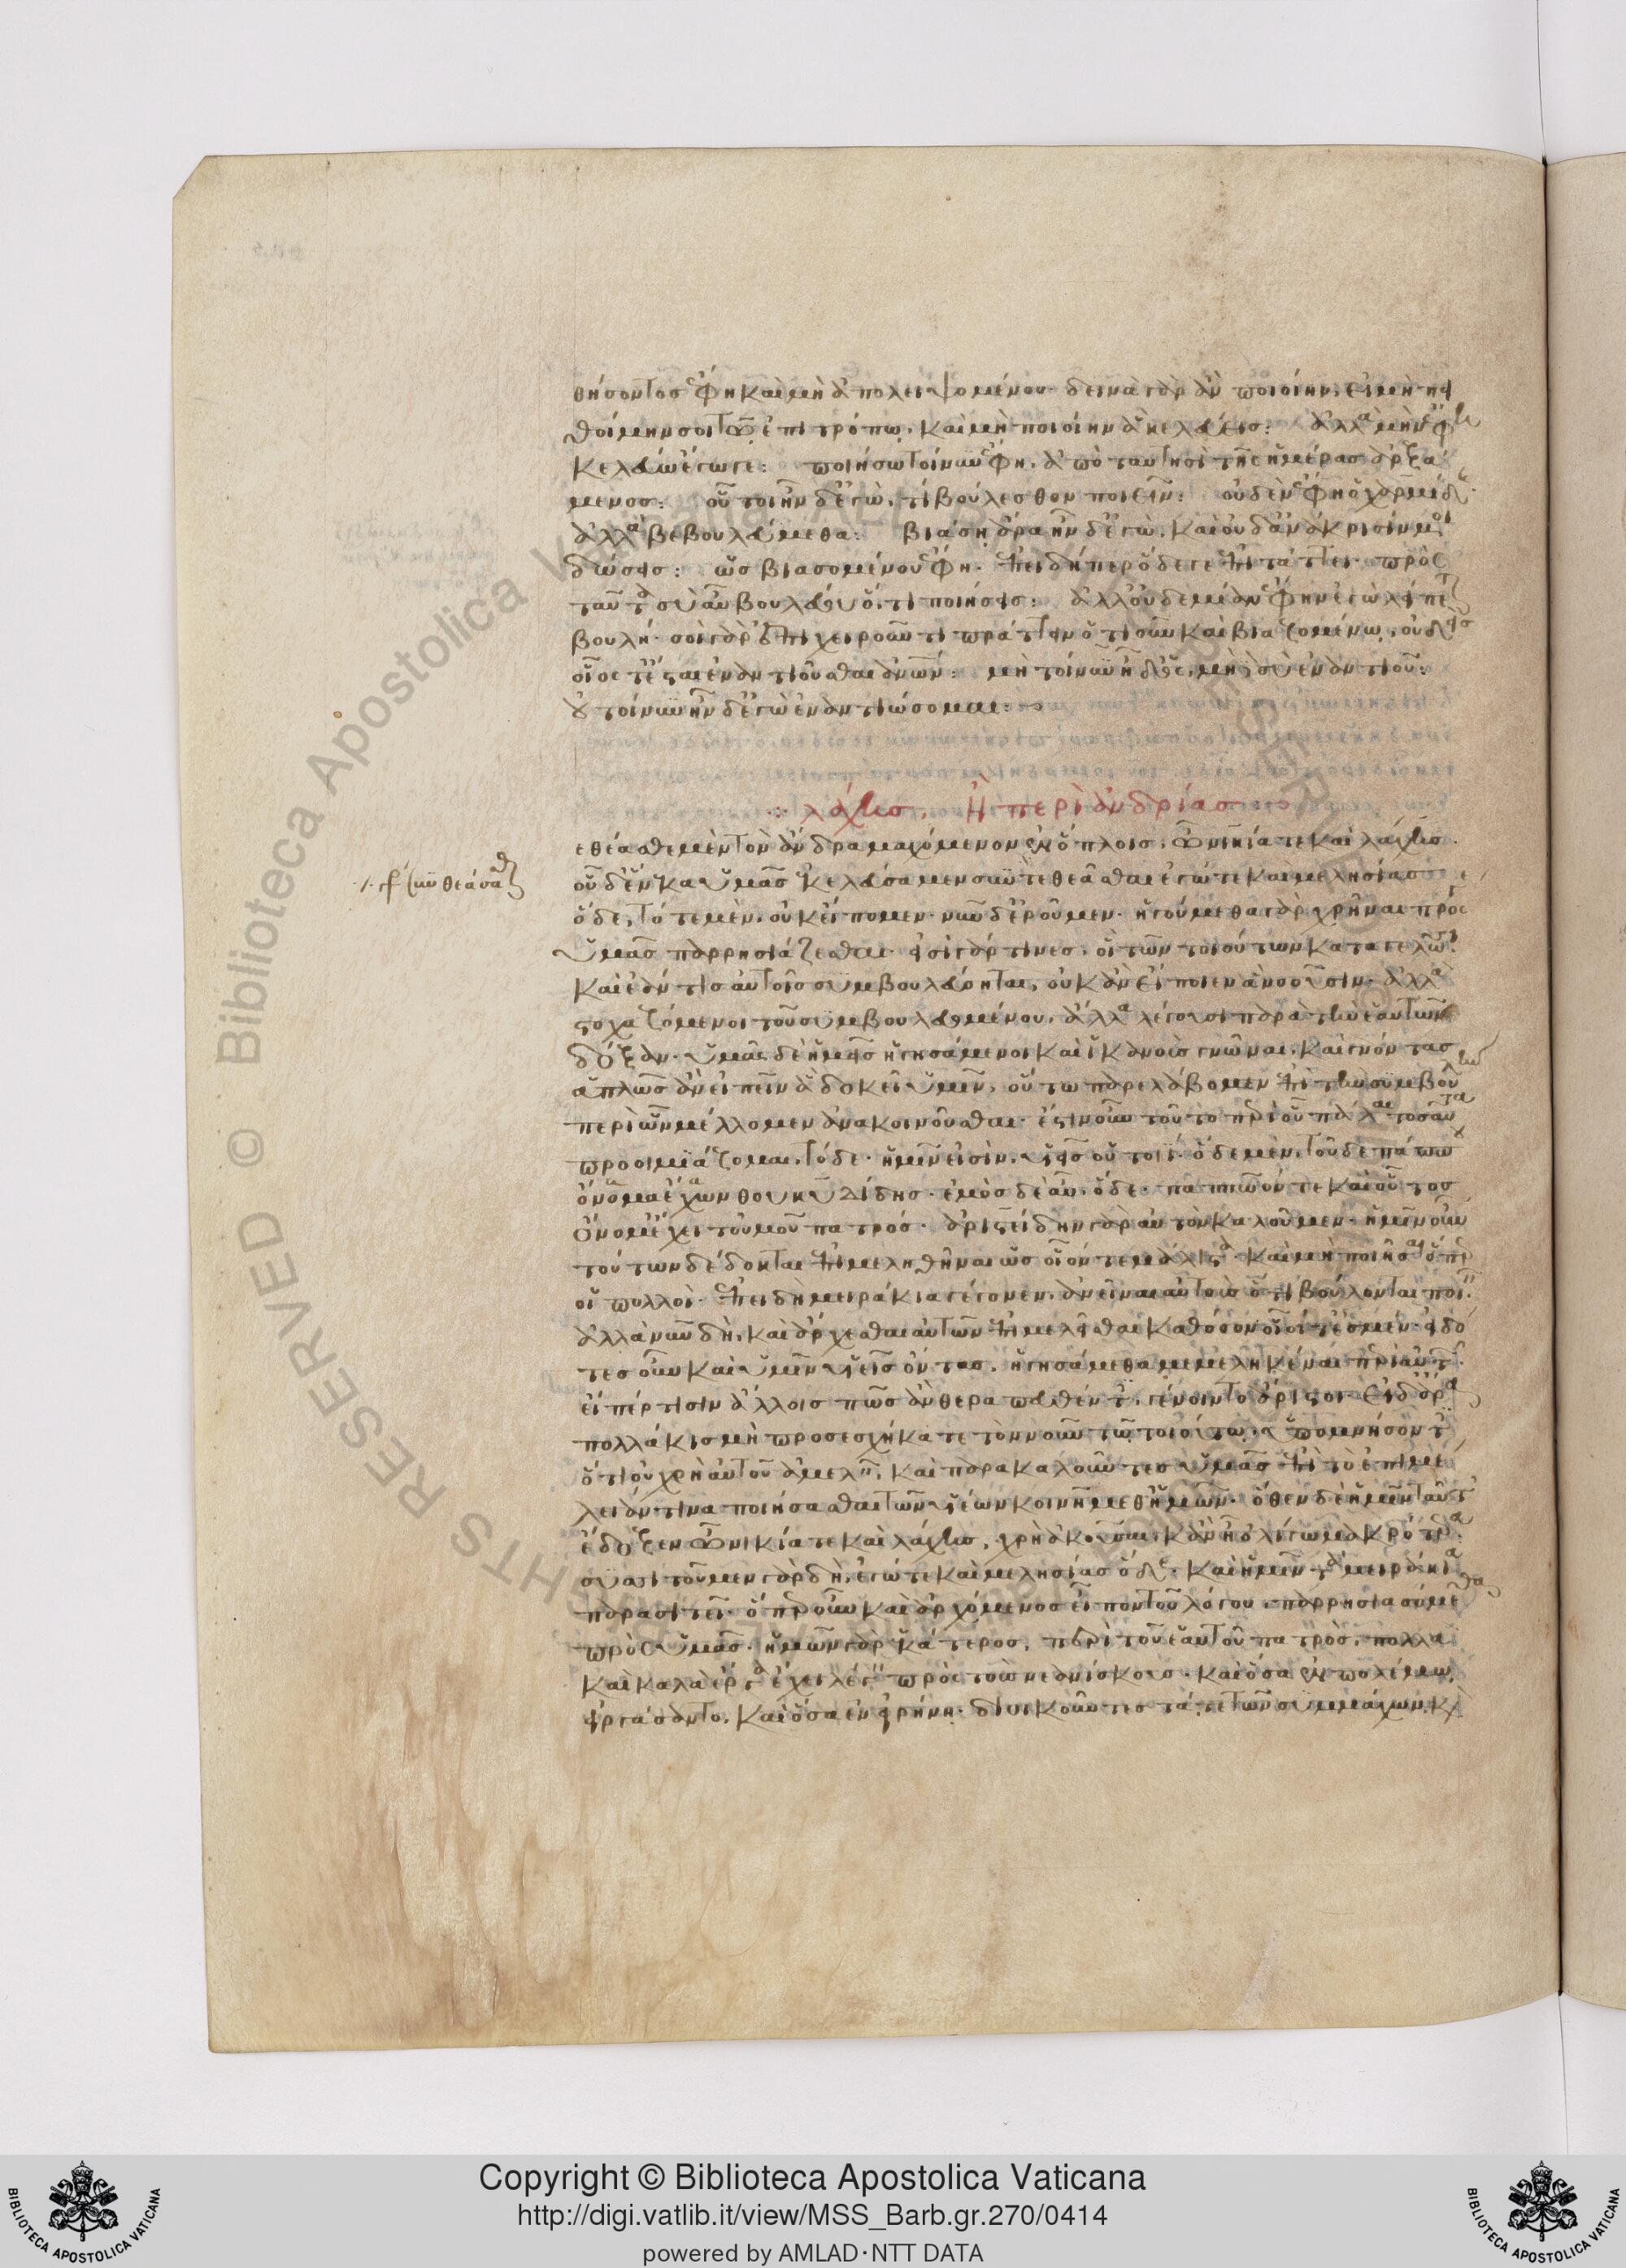 θήσοντος ἔφη καὶ μὴ ἀπολειψομένου· δεινὰ γὰρ ἂν ποιοίην, εἰ μὴ πει
θοίμην σοι τῶ ἐπιτρόπω, καὶ μὴ ποιοίην ἃ κελεύεις: ἀλλὰ μὴν ἔφη
κελεύω ἔγωγε: ποιήσω τοίνυν ἔφη, ἀπὸ ταυτησὶ τῆς ἡμέρας ἀρξά
μενος: οὗτοι ἦν δ' ἐγὼ, τί βουλεύεσθον ποιεῖν: οὐδὲν ἔφη ὁ χαρμίδης·
ἀλλὰ βεβουλεύμεθα: βιάση ἄρα ἦν δ' ἐγὼ, καὶ οὐδ' ἀνάκρισίν μοι
δώσεις: ὡς βιασομένου ἔφη· ἐπειδήπερ ὅδε γε ἐπιτάττει· πρὸς
ταῦτα σὺ αὖ βουλεύου ὅ, τι ποιήσεις: ἀλλ' οὐδεμία ἔφην ἐγὼ λείπεται
βουλή· σοὶ γὰρ ἐπιχειροῦντι πράττειν ὁτιοῦν καὶ βιαζομένω, οὐδεὶς
οἷός τ' ἔσται ἐναντιοῦσθαι ἀνθρώπων: μὴ τοίνυν ἦ δ' ὃς, μὴδὲ σὺ ἐναντιοῦ:
οὐ τοίνυν ἦν δ' ἐγὼ ἐναντιώσομαι:
λάχης, ἢ περὶ ἀνδρίας:
εθέασθε μὲν τὸν ἄνδρα μαχόμενον ἐν ὅπλοις, ὦ νικία τε καὶ λάχης.
οὗ δ' ἕνεκα ὑμᾶς ἐκελεύσαμεν συνθεᾶσθαι ἐγώ τε καὶ μελησίας
ὅδε, τότε μὲν, οὐκ εἴπομεν· νῦν δ' ἐροῦμεν· ἡγούμεθα γὰρ χρῆναι πρός
γε ὑμᾶς παρρησιάζεσθαι· εἰσὶ γάρ τινες, οἳ τῶν τοιούτων καταγελῶσι·
καὶ ἐάν τις αὐτοῖς συμβουλεύσηται, οὐκ ἂν εἴποιεν ἃ νοοῦσιν· ἀλλὰ
στοχαζόμενοι τοῦ συμβουλευομένου, ἄλλα λέγουσι παρὰ τὴν ἑαυτῶν
δόξαν. ὑμᾶς δὲ ἡμεῖς ἡγησάμενοι καὶ ἱκανοὺς γνῶναι, καὶ γνόντας
ἁπλῶς ἂν εἰπεῖν ἃ δοκεῖ ὑμῖν, οὕτω παρελάβομεν ἐπὶ τὴν συμβουλὴν
περὶ ὧν μέλλομεν ἀνακοινοῦσθαι· ἔστιν οὖν τοῦτο περὶ οὗ πάλαι τοσαῦτα
προοιμιάζομαι, τόδε· ἡμῖν εἰσὶν, υἱεῖς οὑτοιί· ὅδε μὲν, τοῦδε πάππου
ὄνομα ἔχων θουκυδίδης· ἐμὸς δὲ αὖ, ὅδε· παππῶον τε καὶ οὗτος
ὄνομ' ἔχει τοὐμοῦ πατρός· ἀριστείδην γὰρ αὐτὸν καλοῦμεν· ἡμῖν οὖν
τούτων δέδοκται ἐπιμεληθῆναι ὡς οἷόν τε μάλιστα· καὶ μὴ ποιῆσαι ὅπερ
οἱ πολλοὶ· ἐπειδὴ μειράκια γέγονεν, ἀνεῖναι αὐτοὺς ὅ τι βούλονται ποιεῖν.
ἀλλὰ νῦν δὴ, καὶ ἄρχεσθαι αὐτῶν ἐπιμελεῖσθαι καθόσον οἷοί τ' ἐσμέν· εἰδό
τες οὖν καὶ ὑμῖν υἱεῖς ὄντας, ἡγησάμεθα μεμεληκέναι περὶ αὐτῶν.
εἴπέρ τισιν ἄλλοις πῶς ἂν θεραπευθέντες, γένοιντο ἄριστοι· εἰ δ' ἄρα
πολλάκις μὴ προσεσχήκατε τὸν νοῦν τῶ τοιούτω, ὑπομνήσοντες
ὅτι οὐ χρὴ αὐτοῦ ἀμελεῖν, καὶ παρακαλοῦντες ὑμᾶς ἐπὶ τὸ ἐπιμέ
λειάν τινα ποιήσασθαι τῶν υἱέων κοινῆ μεθ' ἡμῶν. ὅθεν δὲ ἡμῖν ταῦτ'
ἔδοξεν ὦ νικία τε καὶ λάχης, χρὴ ἀκοῦσαι, κἂν ἦ ὀλίγω μακρότερα.
συσσιτοῦμεν γὰρ δὴ, ἐγώ τε καὶ μελησίας ὅδε· καὶ ἡμῖν τὰ μειράκια
παρασιτεῖ· ὅπερ οὖν καὶ ἀρχόμενος εἶπον τοῦ λόγου, παρρησιασόμεθα
πρὸς ὑμᾶς. ἡμῶν γὰρ ἑκάτερος, περὶ τοῦ ἑαυτοῦ πατρὸς, πολλὰ
καὶ καλὰ ἔργα ἔχει λέγειν πρὸς τοὺς νεανίσκους. καὶ ὅσα ἐν πολέμω
εἰργάσαντο, καὶ ὅσα ἐν εἰρήνη· διοικοῦντες τά, τε τῶν συμμάχων, καὶ
γρ. συνθεάσασθαι
Copyright © Biblioteca Apostolica Vaticana
http://digi.vatlib.it/view/MSS_Barb.gr.270/0414
powered by AMLAD·NTT DATA
Biblioteca Apostolica Vaticana ©
RIGHTS RESERVED
BIBLIOTECA APOSTOLICA VATICANA
BIBLIOTECA APOSTOLICA VATICANA